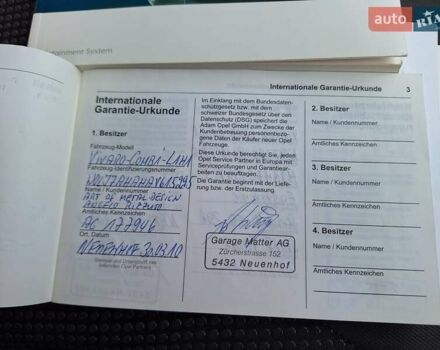 auto
RIA
tainment System
Internationale Garantie-Urkunde 3
Internationale
Garantie-Urkunde
1. Besitzer
Fahrzeug-Modell
VIVARO-COMBI-L1H1
Fahrzeug-Identifizierungsnummer
Name / Kundennummer
ART OF METAL DESIGN
Amtliches Kennzeichen
AG 177946
Ort, Datum
30.03.10
Stempel und Unterschrift des
liefernden Opel Partners
Im Einklang mit dem Bundesdaten-
schutzgesetz bzw. mit dem
schweizer Bundesgesetz über den
Datenschutz (DSG) speichert die
Adam Opel GmbH zum Zwecke der
Kundenbetreuung personenbezo-
gene Daten der Käufer neuer Opel
Fahrzeuge.
Diese Urkunde berechtigt Sie, jeden
Opel Service Partner in Europa mit
Serviceprüfungen und Garantiear-
beiten zu beauftragen.
Die Garantie beginnt mit der Liefe-
rung bzw. der Erstzulassung.
Garage Matter AG
Zürcherstrasse 152
5432 Neuenhof
2. Besitzer
Name / Kundennummer
Amtliches Kennzeichen
3. Besitzer
Name / Kundennummer
Amtliches Kennzeichen
4. Besitzer
Name / Kundennummer
Amtliches Kennzeichen